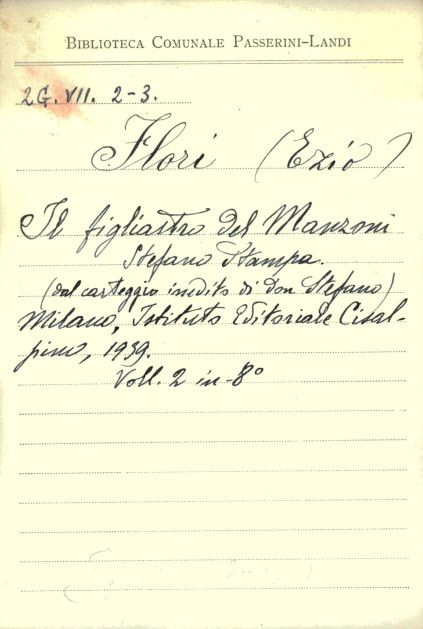 BIBLIOTECA COMUNALE PASSERINI-LANDI
2G. VII. 2-3.
Flori (Ezio)
Il figliastro del Manzoni
Stefano Stampa.
(dal carteggio inedito di don Stefano)
Milano, Istituto Editoriale Cisal-
pino, 1939.
Voll. 2 in-8°